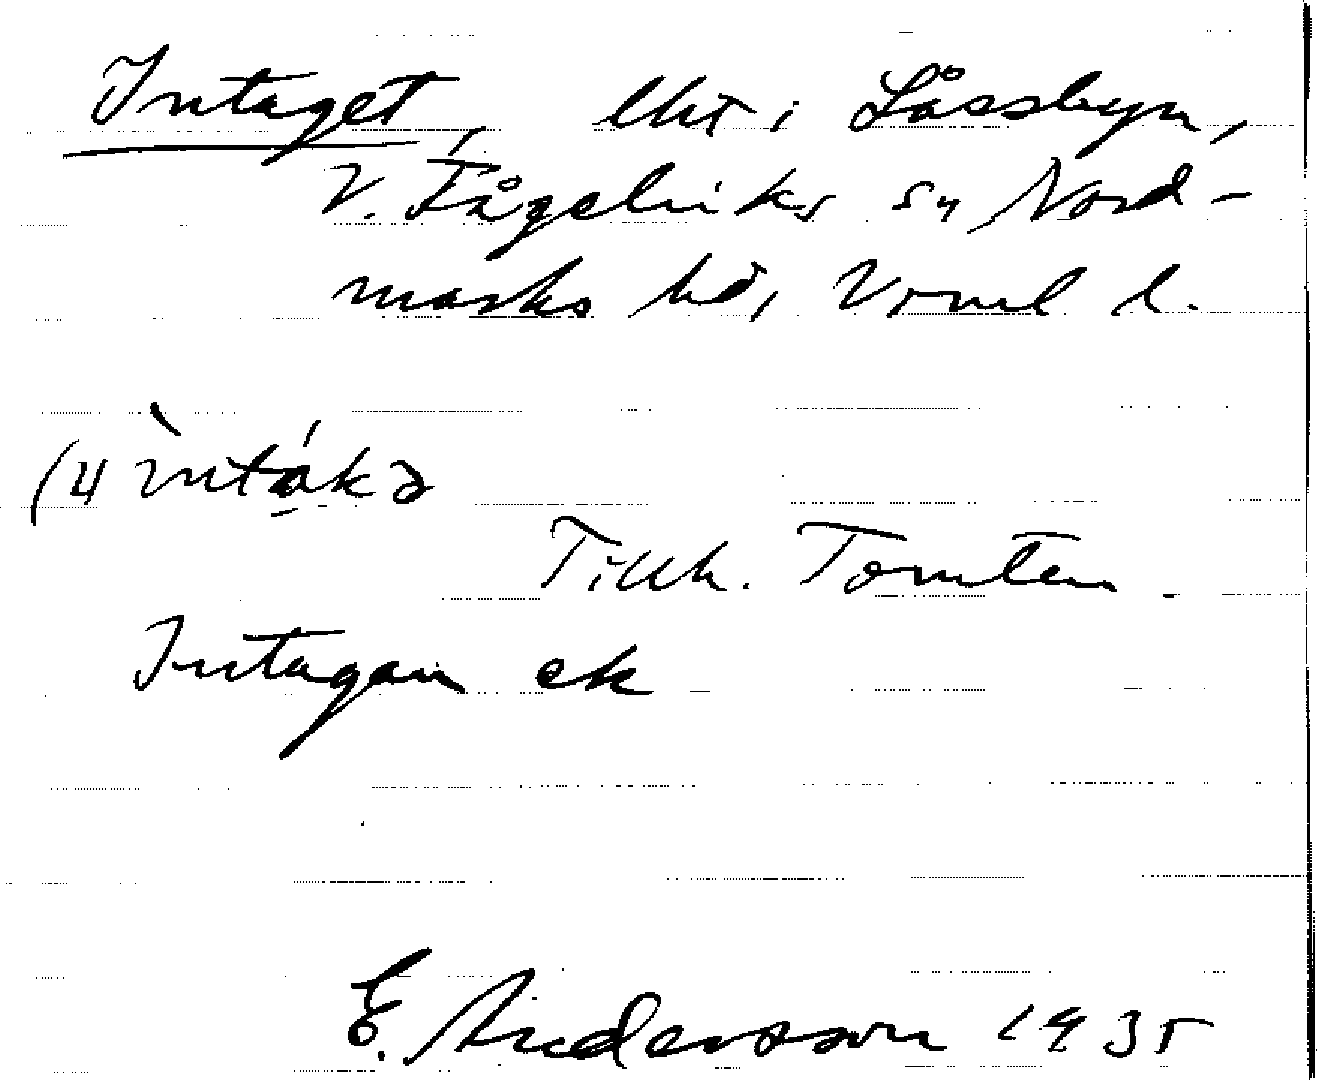 Intaget, lht i Låssbyn,
V. Fågelviks sn Nord-
marks hd, Vrml l.
(4 ìntákə
Tillh. Tomten
Intagan ek
E. Andersson 1935